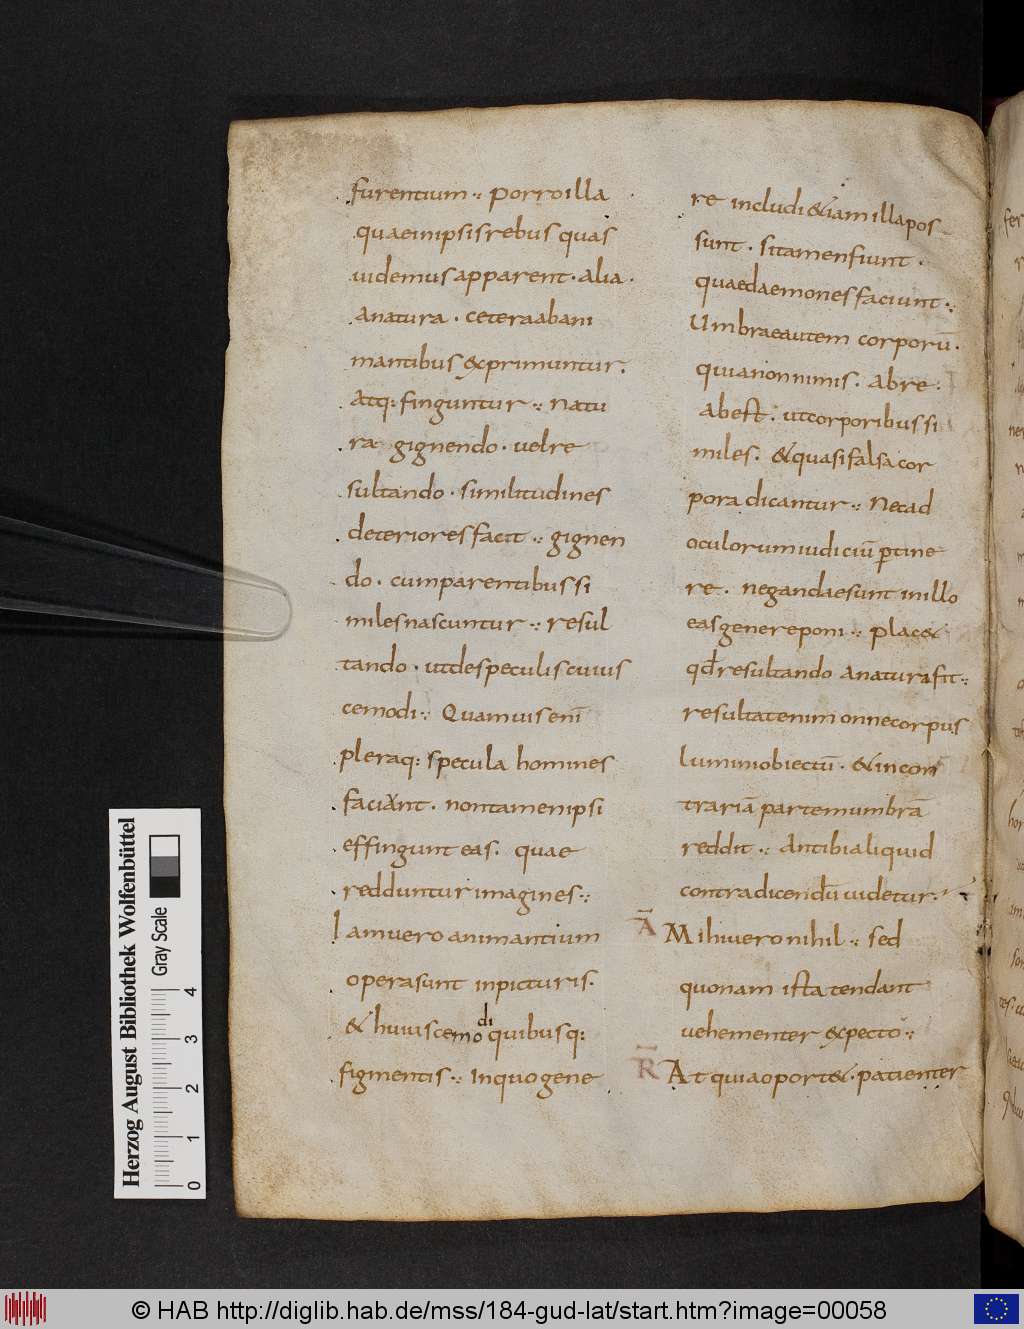 furentium · porro illa
quae in ipsis rebus quas
videmus apparent · alia ·
anatura · cetera ab ani
mantibus exprimuntur .
atq: finguntur · natu
ra gignendo · vel re
sultando · similitudines
deteriores facit · gignen
do · cum parentibus si
miles nascuntur · resul
tando · ut de speculis cuius
cemodi · Quamvis eni̅
pleraq: specula homines
faciant · non tamen ipsi
effingunt eas . quae
redduntur imagines ·
Iam vero animantium
opera sunt in picturis .
di
& huiuscemo quibusq:
figmentis · in quo gene
re includi &iam illa pos
sunt · si tamen fiunt ·
quae daemones faciunt ·
Umbrae autem corporu̅ .
quia non nimis . ab re
abest . ut corporibus si
miles . & quasi falsa cor
pora dicantur · Nec ad
oculorum iudiciu̅ p̲tine
re . negandae sunt in illo
eas genere poni · plac&
qđ resultando a natura fit ·
resultat enim omne corpus
lumini obiectu̅ · & in con
traria̅ partem umbra̅
reddit · an tibi aliquid
contradicendu̅ videtur .
A̅ Mihi vero nihil · sed
quonam ista tendant
vehementer expecto ·
R̅ At qui aoport& . patienter
Herzog August Bibliothek Wolfenbüttel
Gray Scale
0 1 2 3 4
© HAB http://diglib.hab.de/mss/184-gud-lat/start.htm?image=00058